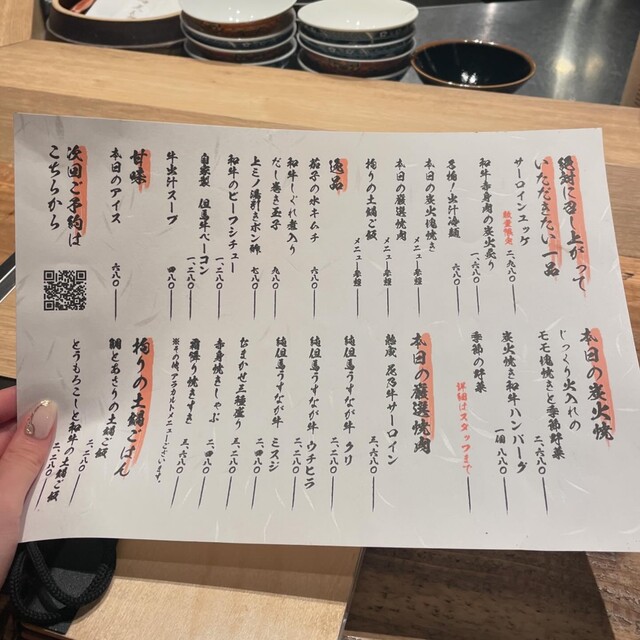 絶対に召し上がって
いただきたい一品
サーロインユッケ
数量限定
二、九八〇
和牛赤身肉の炭火炙り
一、六八〇
名物！出汁冷麺
本日の炭火塊焼き
メニュー参照
本日の厳選焼肉
メニュー参照
拘りの土鍋ご飯
メニュー参照
逸品
茄子の水キムチ
六八〇
和牛しぐれ煮入り
だし巻き玉子
九八〇
上ミノ湯引きポン酢
七八〇
和牛のビーフシチュー
一、二八〇
自家製 但馬牛ベーコン
一、二八〇
牛出汁スープ
四八〇
甘味
本日のアイス
六八〇
次回ご予約は
こちらから
本日の炭火焼
じっくり火入れの
モモ塊焼きと季節野菜
二、六八〇
炭火焼き和牛ハンバーグ
一個 八八〇
季節の野菜
詳細はスタッフまで
本日の厳選焼肉
サーロイン
純但馬うすなが牛 クリ
二、六八〇
純但馬うすなが牛 ウチヒラ
二、二八〇
純但馬うすなが牛 ミスジ
二、六八〇
なまかせ三種盛り
三、二八〇
赤身焼きしゃぶ
二、四八〇
霜降り焼きすき
三、六八〇
※その他、アラカルトメニューございます。
拘りの土鍋ごはん
鯛とあさりの土鍋ご飯
二、二八〇
とうもろこしと和牛の土鍋ご飯
二、二八〇